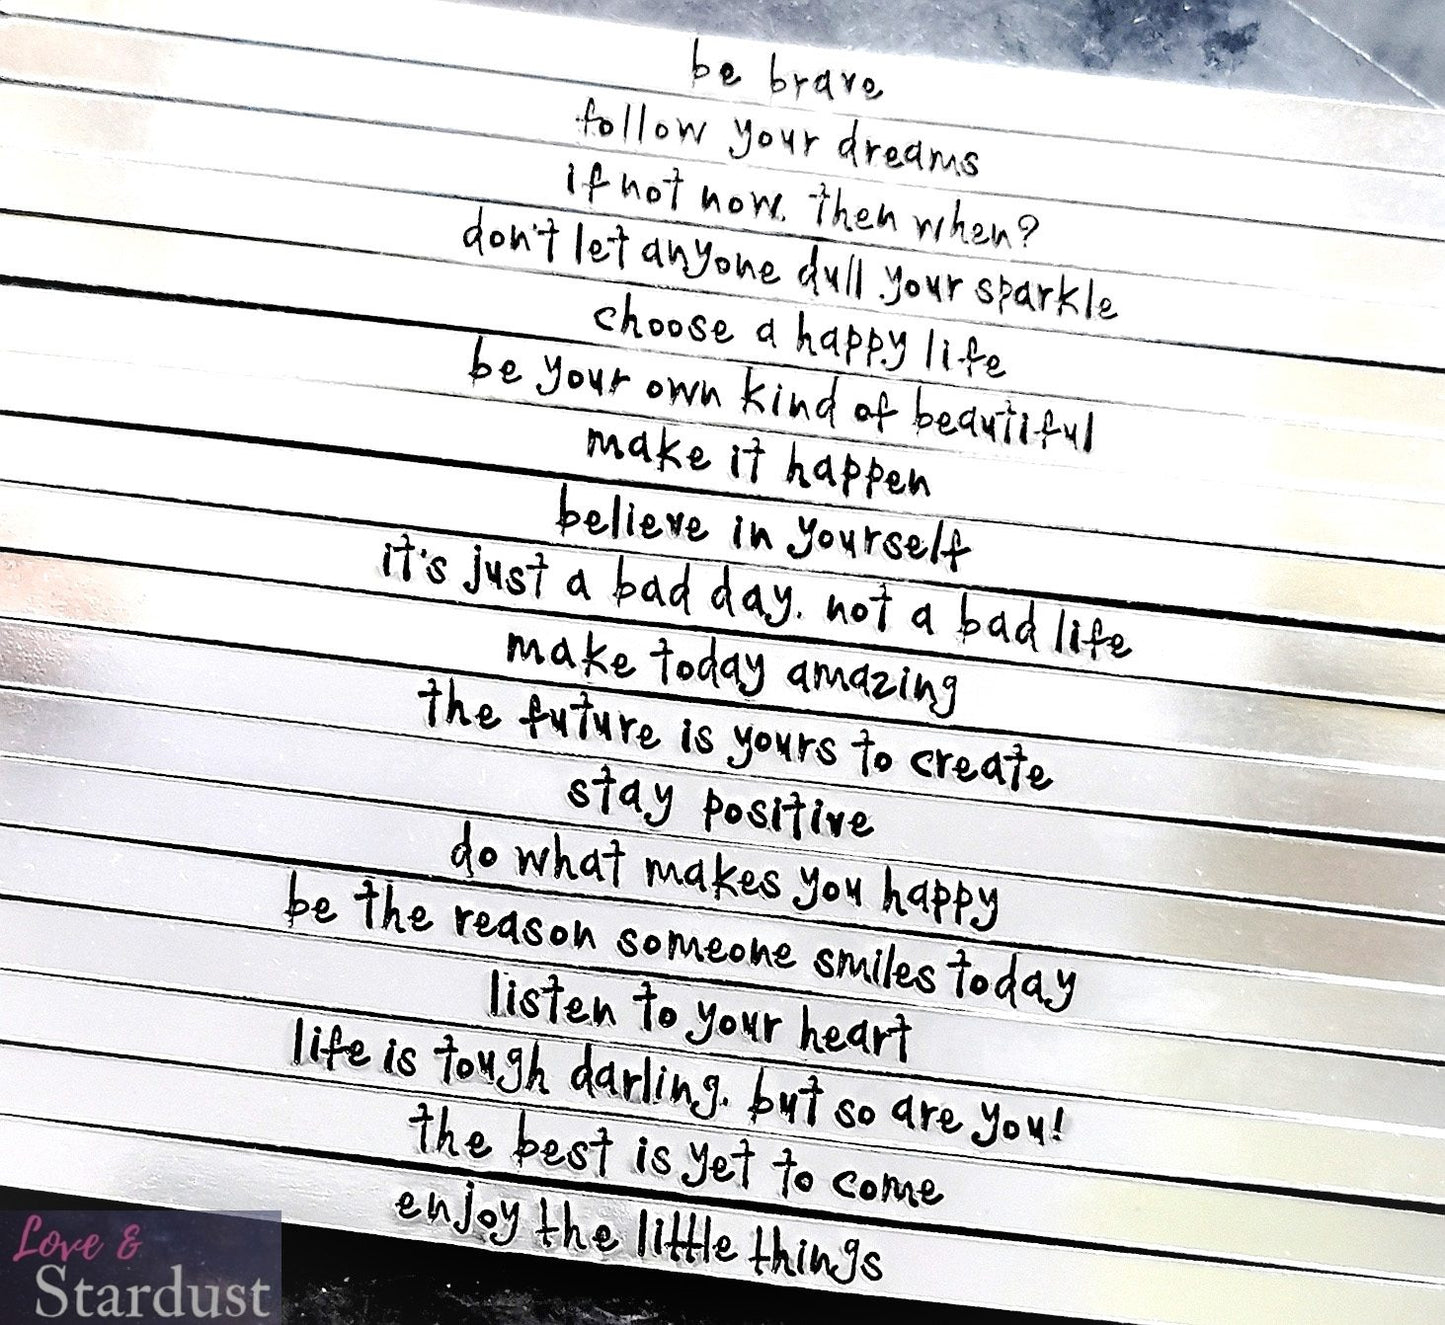 be brave
follow your dreams
if not now. then when?
don't let anyone dull your sparkle
choose a happy life
be your own kind of beautiful
make it happen
believe in yourself
it's just a bad day. not a bad life
make today amazing
the future is yours to create
stay positive
do what makes you happy
be the reason someone smiles today
listen to your heart
life is tough darling. but so are you!
the best is yet to come
enjoy the little things
Love &
Stardust